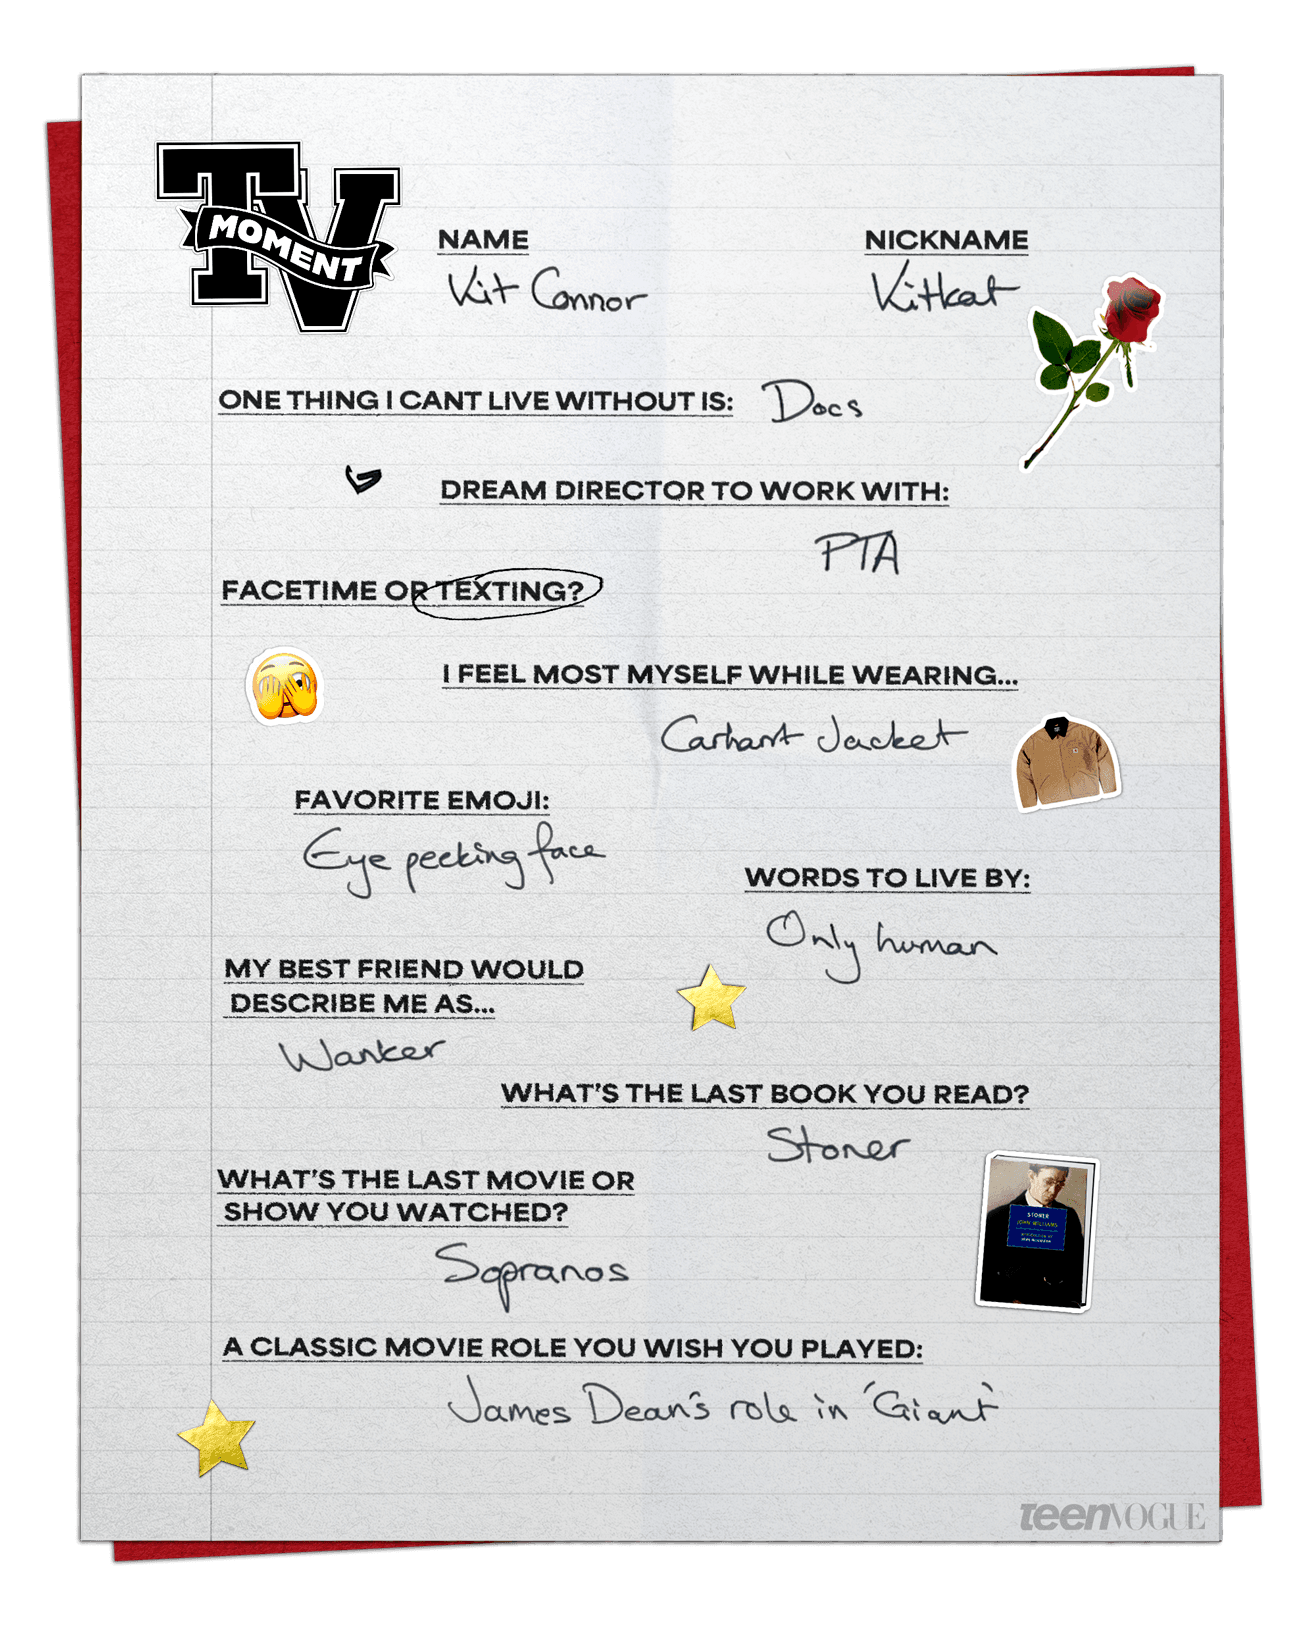 TV
MOMENT
NAME
Kit Connor
NICKNAME
Kitkat
ONE THING I CANT LIVE WITHOUT IS: Docs
DREAM DIRECTOR TO WORK WITH:
PTA
FACETIME OR TEXTING?
I FEEL MOST MYSELF WHILE WEARING...
Carhart Jacket
FAVORITE EMOJI:
Eye peeking face
WORDS TO LIVE BY:
Only human
MY BEST FRIEND WOULD
DESCRIBE ME AS...
Wanker
WHAT'S THE LAST BOOK YOU READ?
Stoner
STONER
JOHN WILLIAMS
WHAT'S THE LAST MOVIE OR
SHOW YOU WATCHED?
Sopranos
A CLASSIC MOVIE ROLE YOU WISH YOU PLAYED:
James Dean's role in 'Giant'
teenVOGUE